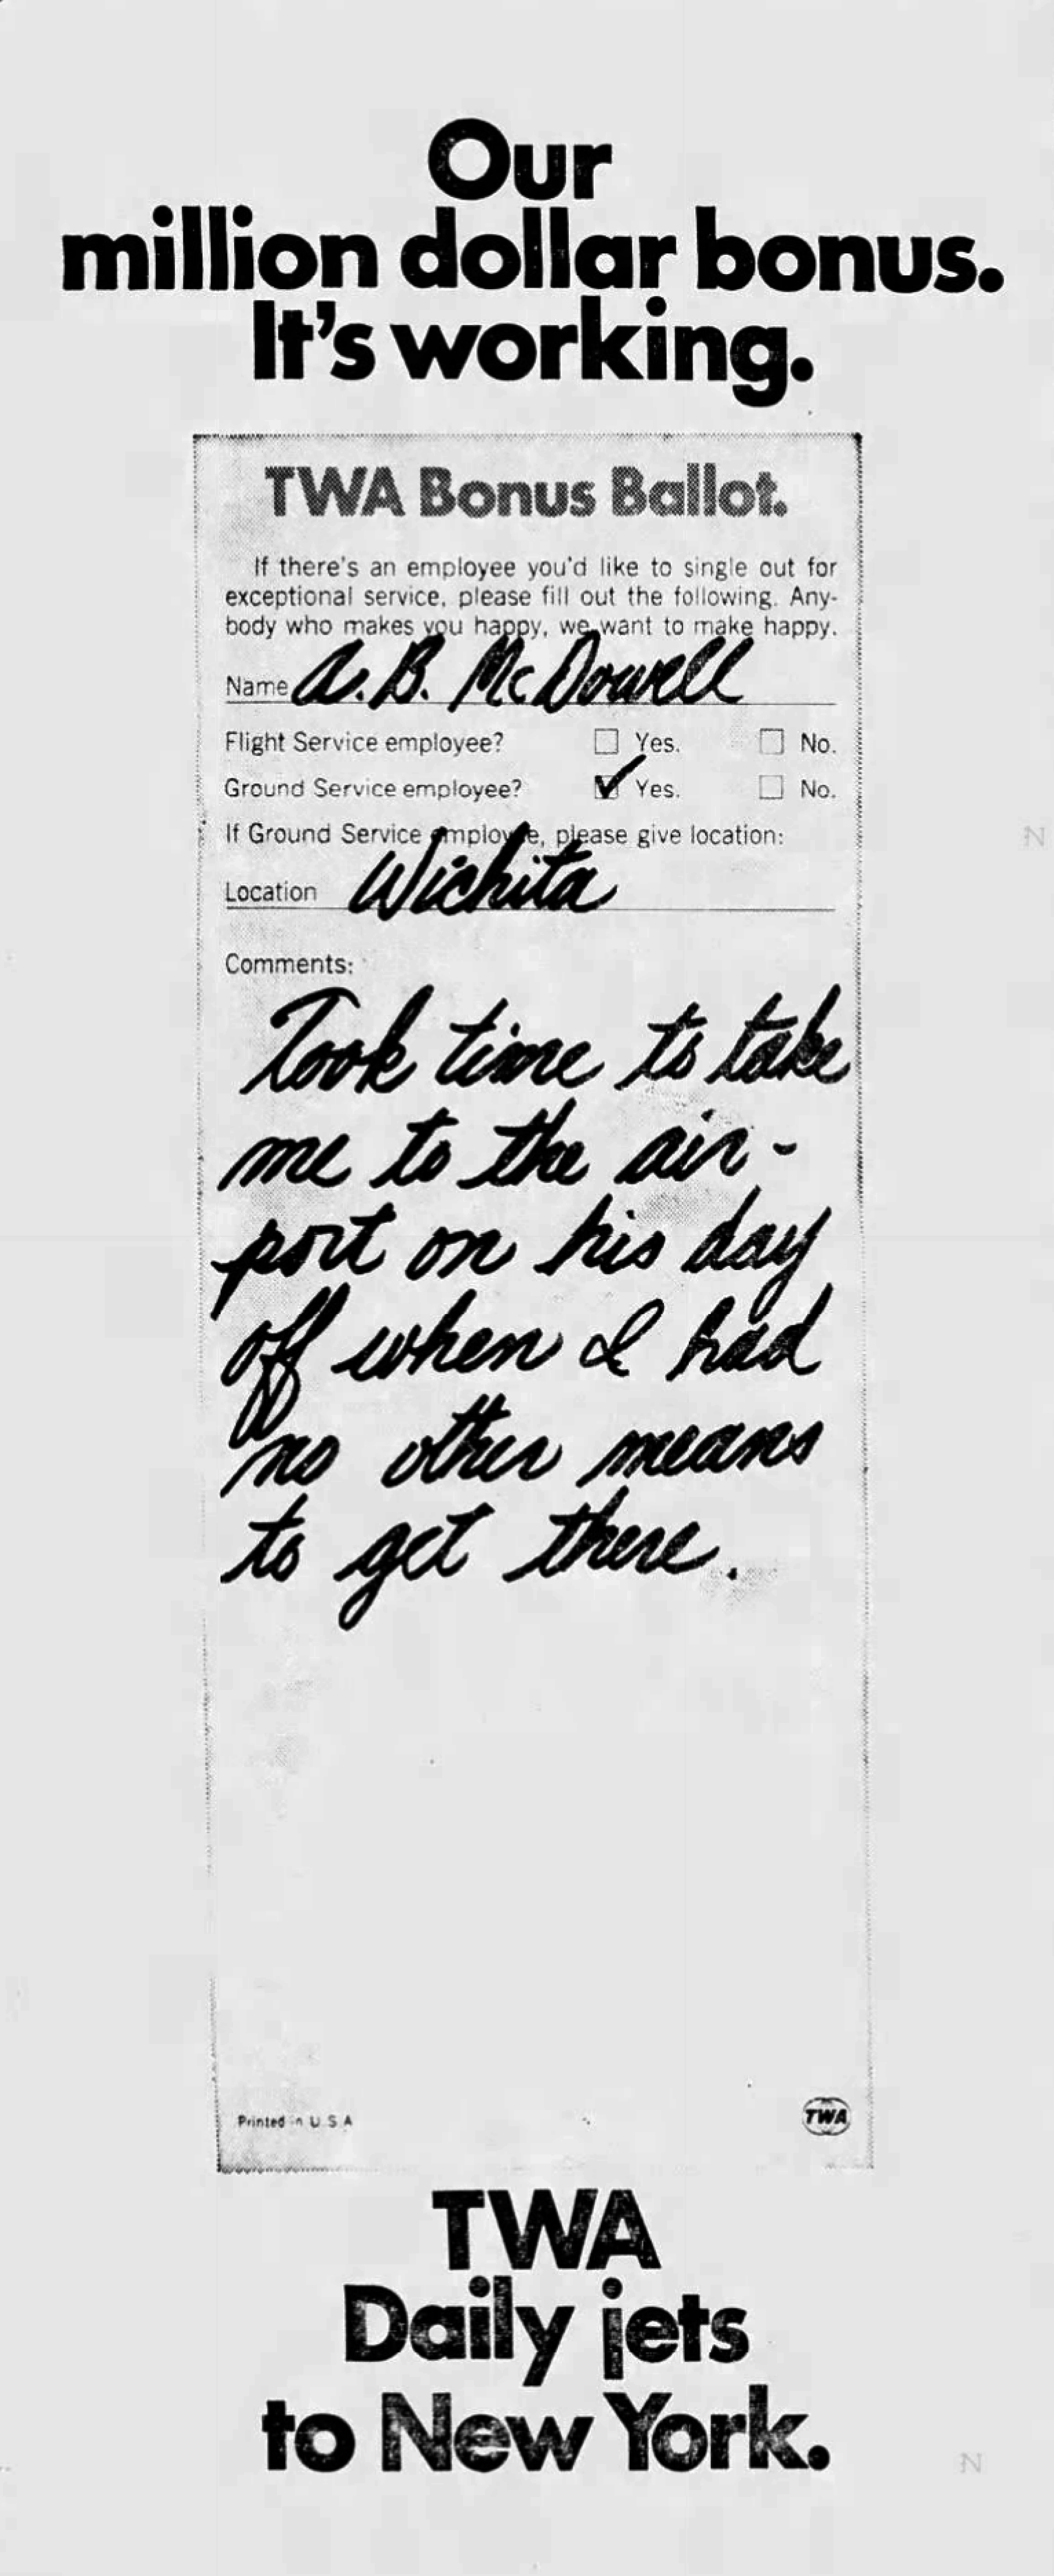 Our
million dollar bonus.
It's working.
TWA Bonus Ballot.
If there's an employee you'd like to single out for
exceptional service, please fill out the following. Any-
body who makes you happy, we want to make happy.
Name A. B. McDowell
Flight Service employee? ☐ Yes. ☐ No.
Ground Service employee? ☑ Yes. ☐ No.
If Ground Service employee, please give location:
Location Wichita
Comments:
Took time to take
me to the air-
port on his day
off when I had
no other means
to get there.
Printed in U S A
TWA
TWA
Daily jets
to New York.